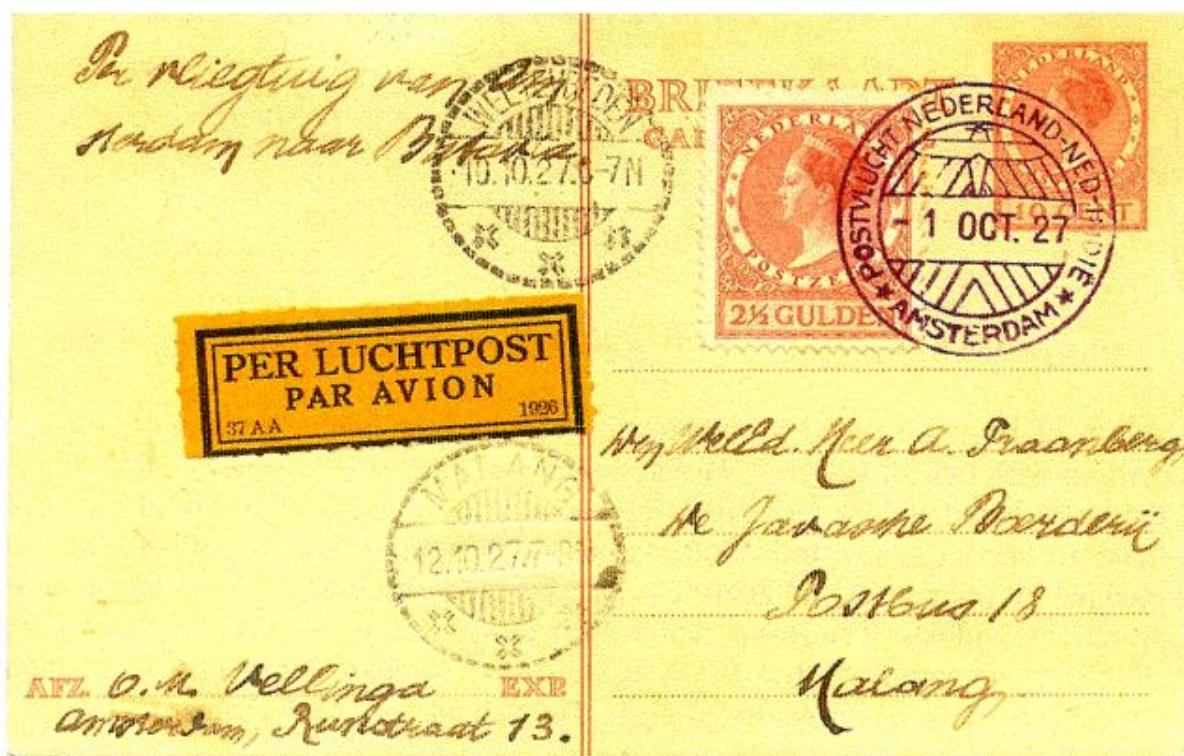 Per vliegtuig van Am-
sterdam naar Batavia
BRIEFKAART
WELTEVREDEN
10.10.27.6-7N
NEDERLAND
POSTZEGEL
2½ GULDEN
NEDERLAND
10 CENT
POSTVLUCHT NEDERLAND-NED-INDIË
- 1 OCT. 27
AMSTERDAM
PER LUCHTPOST
PAR AVION
37 A A
1926
MALANG
12.10.27.7-8
Heer A. Traanberg
de Javasche Boerderij
Postbus 18
Malang
AFZ. O.M. Vellinga EXP.
Amsterdam, 13.